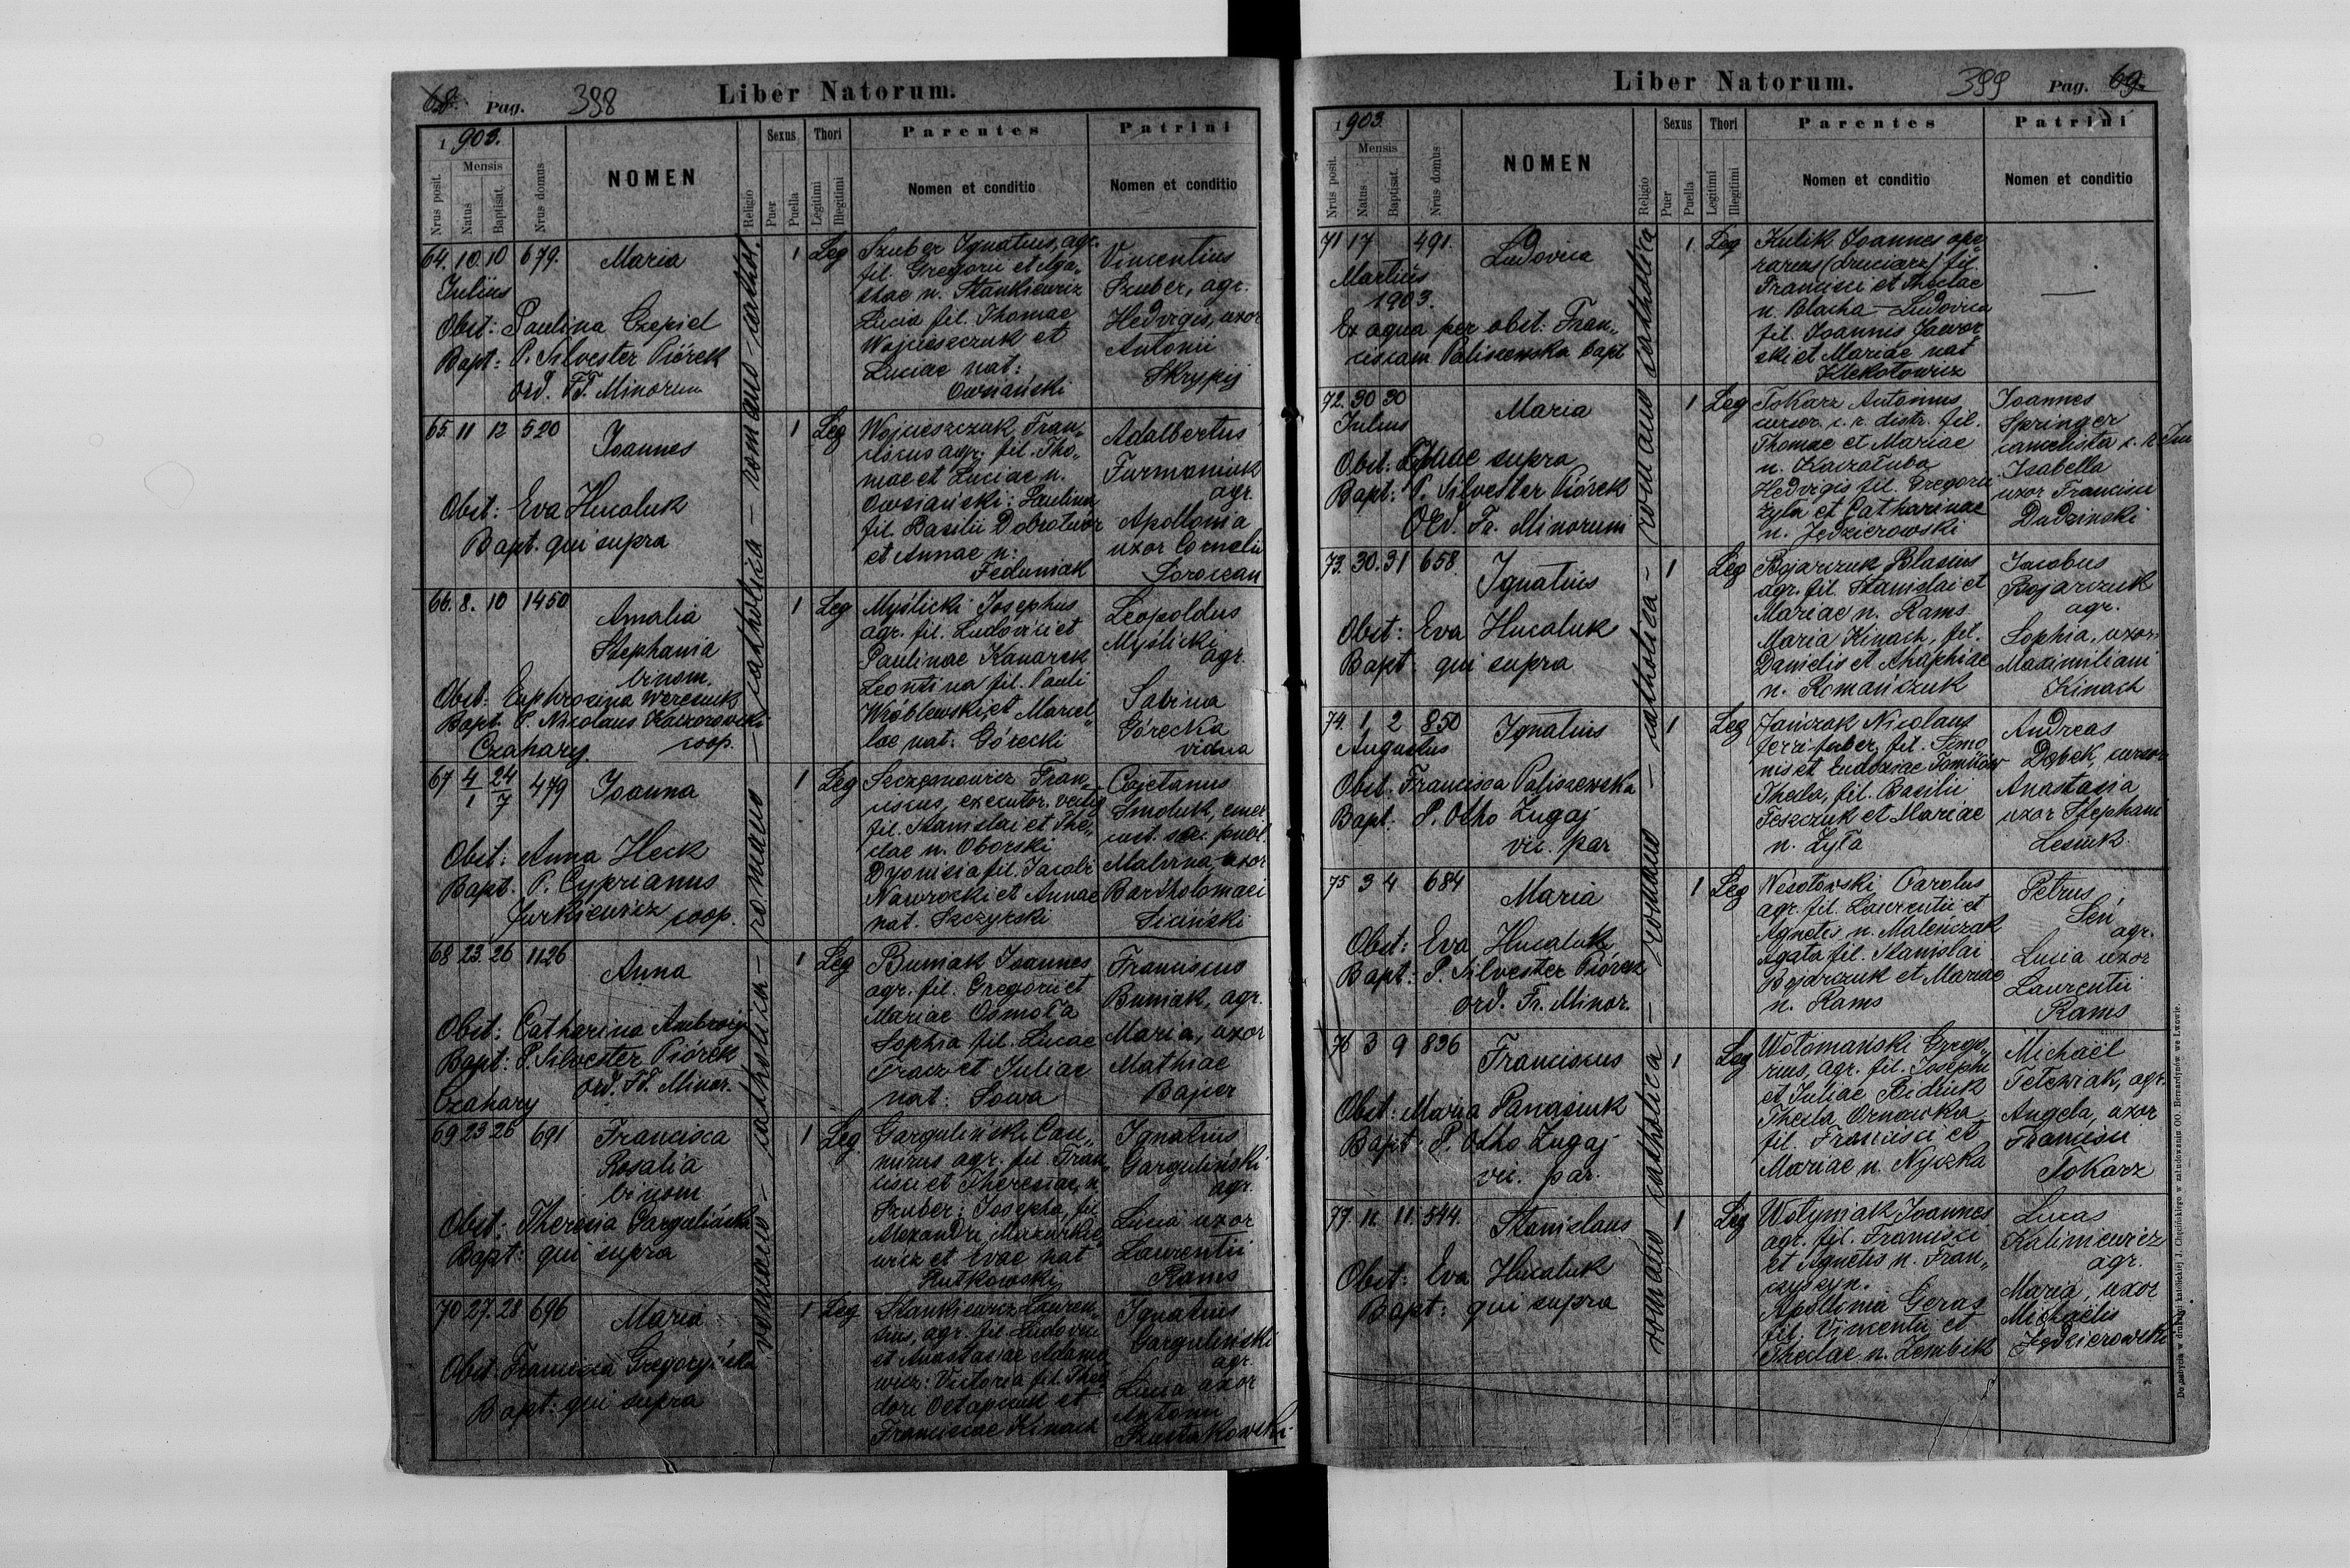 68. Pag. 398 Liber Natorum.
1903.
Nrus posit.
Mensis
Natus
Baptisat.
Nrus domus
NOMEN
Religio
Sexus
Puer
Puella
Thori
Legitimi
Illegitimi
Parentes
Nomen et conditio
Patrini
Nomen et conditio
romano - catholica - romano - catholica - romano - cathol.
64. 10 10 679. Maria 1 Leg
Julius
Obst: Paulina Czepiel
Bapt: P. Silvester Piórek
ord. FF. Minorum
Szuber Ignatius, agr.
fil. Gregorii et Aga„
thae n. Stankiewicz
Lucia fil. Thomae
Wojcieszczuk et
Luciae nat:
Owsiański
Vincentius
Szuber, agr.
Hedvigis, uxor
Antonii
Skrypij
65. 11 12 520 Joannes 1 Leg
Obst: Eva Hucaluk
Bapt. qui supra
Wojcieszczuk Fran„
ciscus agr. fil. Tho„
mae et Luciae n.
Owsiański: Paulina
fil. Basilii Dobrotwor
et Annae n:
Feduniak
Adalbertus
Furmaniuk
agr.
Apollonia
uxor Cornelii
Sorocean
66. 8. 10 1450 Amalia 1 Leg
Stephania
binom.
Obst: Euphrosina Weresiuk
Bapt. P. Nicolaus Kaczorowski
Czahary. coop.
Myślicki Josephus
agr. fil. Ludovici et
Paulinae Kanarek
Leontina fil. Pauli
Wróblewski, et Marcel„
lae nat: Górecki
Leopoldus
Myślicki
agr.
Sabina
Górecka
vidua
67 4/1 24/7 479 Joanna 1 Leg
Obst: Anna Heck
Bapt. P. Cyprianus
Jurkiewicz coop.
Szczęsnowicz Fran„
ciscus, executor.
fil. Stanislai et The„
clae n. Oborski
Dyonisia fil. Jacobi
Nawrocki et Annae
nat. Szczyrski
Cajetanus
Smoluk, emer
Malvina uxor
Bartholomaei
68 23. 26 1126 Anna 1 Leg
Obst: Catharina Ambroży
Bapt: P. Silvester Piórek
Czahary ord. FF. Minor.
Buniak Joannes
agr. fil. Gregorii et
Mariae Osmoła
Sophia fil. Lucae
Tracz et Juliae
nat: Sowa
Franciscus
Buniak, agr.
Maria, uxor
Mathiae
Bajcer
69 23 26 691 Francisca 1 Leg
Rosalia
binom
Obst: Theresia Gargulińska
Bapt: qui supra
Garguliński Casi„
mirus agr. fil. Fran„
cisci et Theresiae, n
Szuber: Josepha, fil
Alexandri Mazurkie„
wicz et Evae nat
Rutkowski
Ignatius
Garguliński
agr.
Lucia uxor
Laurentii
Rams
70 27. 28 696 Maria 1 Leg
Obst. Francisca Gregoryńska
Bapt: qui supra
Stankiewicz Lauren„
tius, agr. fil Ludovici
et Anastasiae Adamo
wicz: Victoria fil. Theo
dori Ostapczuk et
Franciscae Kinach
Ignatius
Garguliński
agr
Lucia uxor
Antonii
Szustakowski
Liber Natorum. 399 Pag. 69.
1903.
Nrus posit.
Mensis
Natus
Baptisat.
Nrus domus
NOMEN
Religio
Sexus
Puer
Puella
Thori
Legitimi
Illegitimi
Parentes
Nomen et conditio
Patrini
Nomen et conditio
romano catholica - romano - catholica - romano catholica
71 17 491. Ludovica 1. Leg
Martius
1903.
Ex aqua per obst: Fran„
ciscam Paliszewska bapt
Kulik Joannes ope„
rarius (druciarz) fil.
Francisci et Theclae
n. Blacha - Ludovica
fil. Joannis Jawor
ski et Mariae nat
Klekotowicz
72. 30 30 Maria 1 Leg
Julius
Obst: quae supra
Bapt: P. Silvester Piórek
Ord. Fr. Minorum
Tokarz Antonius
cursor. c. r. distr. fil.
Thomae et Mariae
n. Kaczałuba
Hedvigis fil. Gregorii
Zyła et Catharinae
n. Jędzierowski
Joannes
Springer
cancelista c. r.
Isabella
uxor Francisci
Dudzinski
73. 30. 31 658. Ignatius 1 Leg
Obst: Eva Hucaluk
Bapt: qui supra
Bojarczuk Blasius
agr. fil. Stanislai et
Mariae n. Rams
Maria Kinach, fil.
Danielis et Ahaphiae
n. Romańczuk
Jacobus
Bojarczuk
agr.
Sophia, uxor
Maximiliani
Kinach
74. 1. 2 850 Ignatius 1 Leg
Augustus
Obst. Francisca Paliszewska
Bapt. P. Otho Zugaj
vic. par
Jańczak Nicolaus
ferri faber, fil. Simo
nis et Eudoxiae Tomiiów
Thecla, fil. Basilii
Teszczuk et Mariae
n. Zyła
Andreas
Dębek, cursor
Anastasia
uxor Stephani
Lesiuk.
75 3 4 684 Maria 1 Leg
Obst: Eva Hucaluk
Bapt: P. Silvester Piórek
ord. Fr. Minor.
Wesołowski Carolus
agr. fil. Laurentii et
Agnetis n. Maleńczak
Agata fil. Stanislai
Bojarczuk et Mariae
n. Rams
Petrus
Seń
agr.
Lucia uxor
Laurentii
Rams
76 3 9 836 Franciscus 1 Leg
Obst: Maria Panasiuk
Bapt: P. Otho Zugaj
vic. par.
Wołomański Grego„
rius, agr. fil. Josephi
et Juliae Ridziuk
Thecla Ornawka
fil. Francisci et
Mariae n. Nyczka
Michaël
Tetewiak, agr.
Angela, uxor
Francisci
Tokarz
77. 11. 11. 544. Stanislaus 1 Leg
Obst: Eva Hucaluk
Bapt: qui supra
Wołyniak Joannes
agr. fil. Francisci
et Agnetis n. Fran„
czyszyn.
Apollonia Geras
fil. Vincentii et
Theclae n. Zembik
Lucas
Kaliniewicz
agr.
Maria, uxor
Michaëlis
Jędzierowski
Do nabycia w drukarni katolickiej J. Chęcińskiego w zabudowaniu OO. Bernardynów we Lwowie.